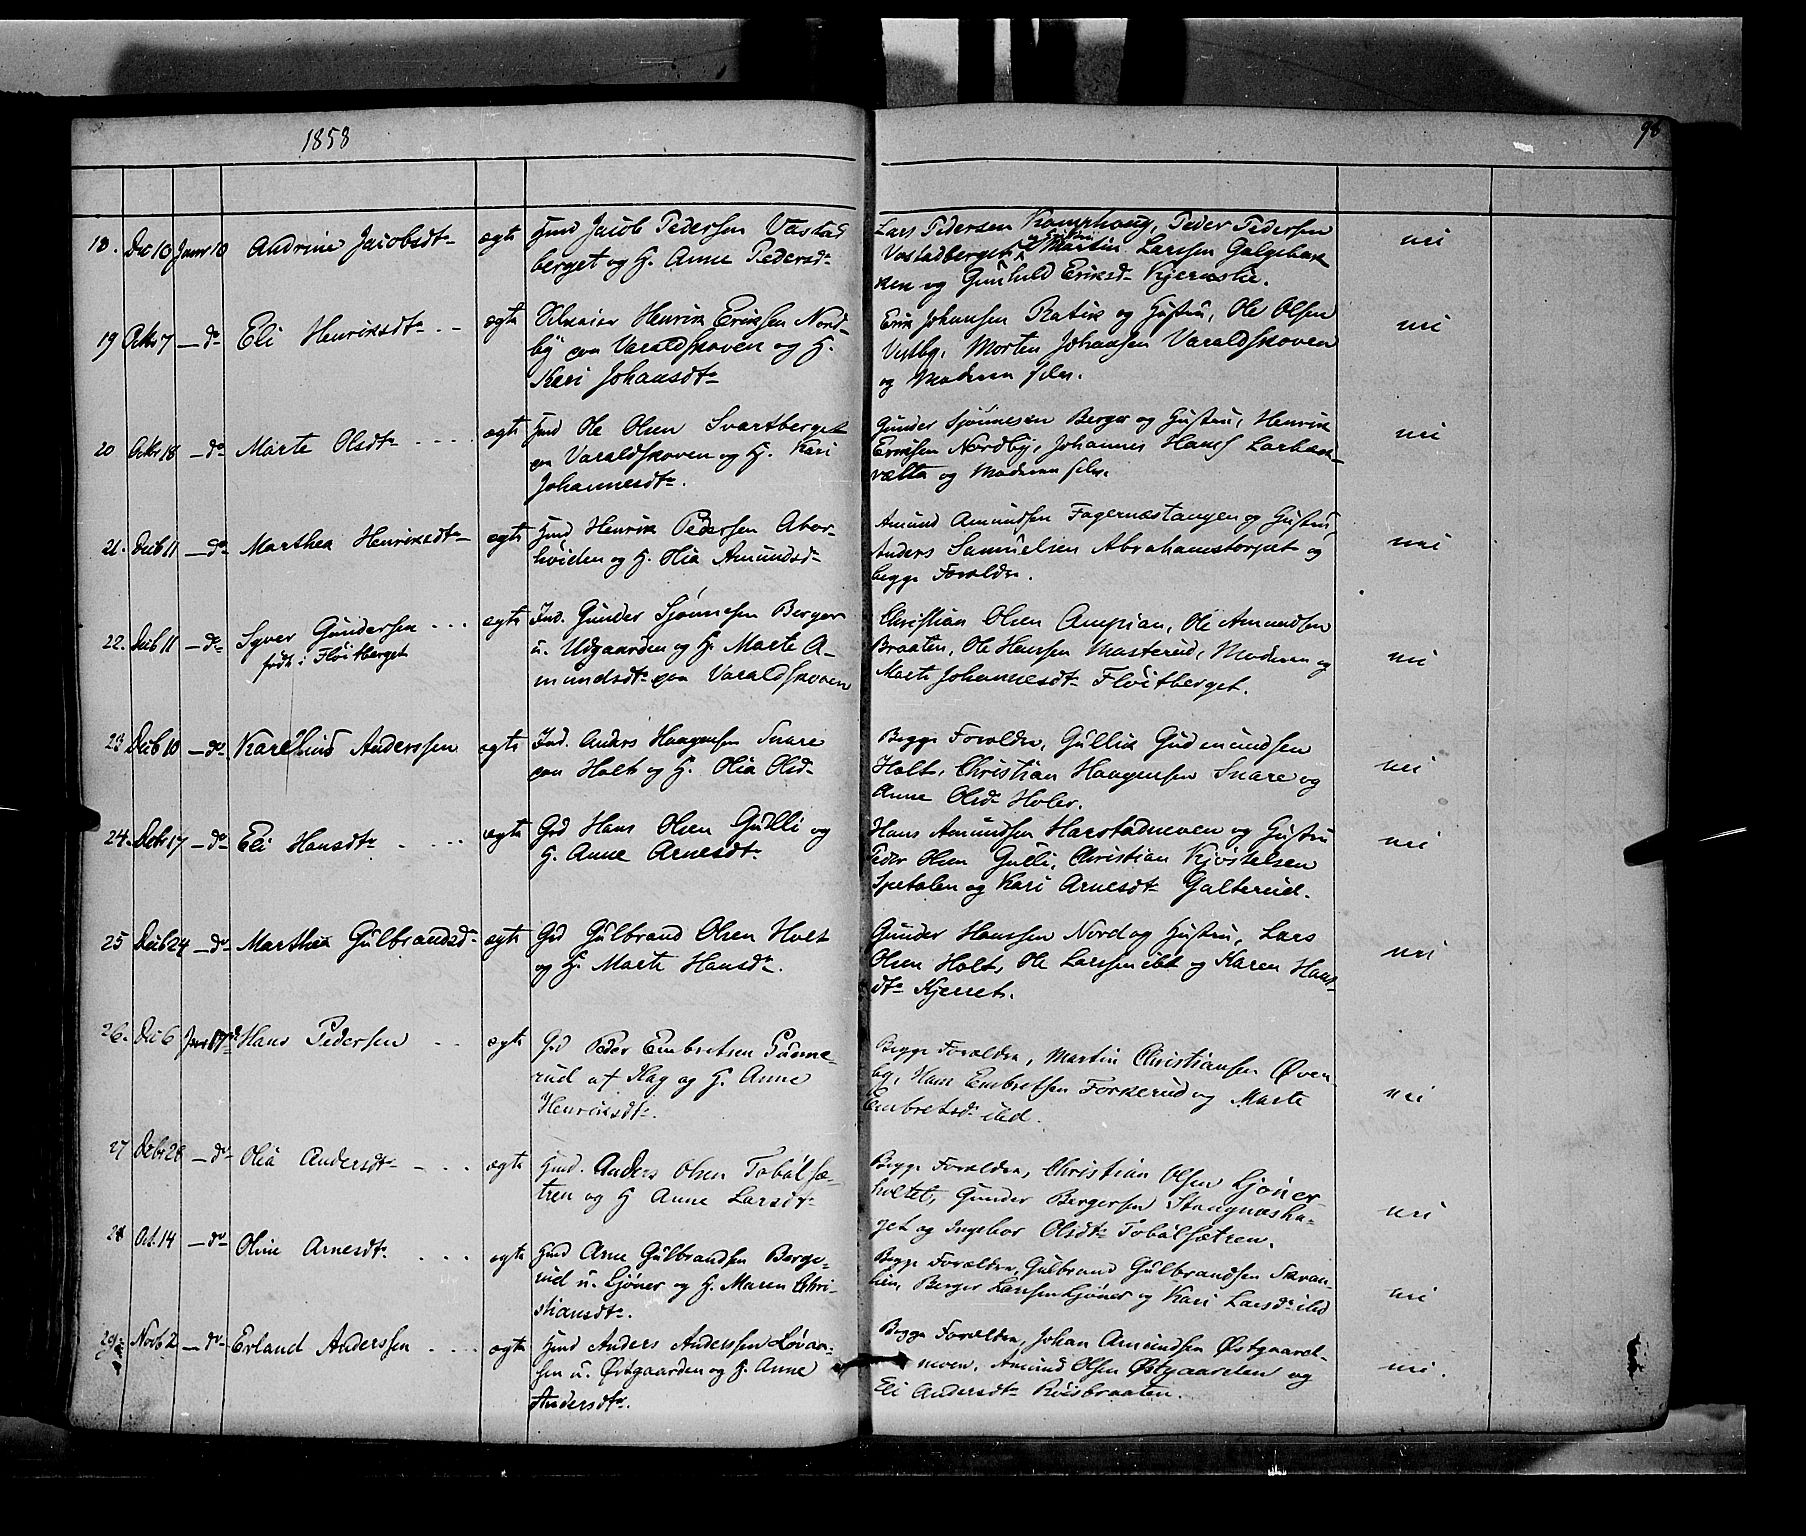 1858
98
18. Dec 10 Janr 10 Andrine Jacobsdtr ægte Hmd Jacob Pedersen Vastad
berget og H. Anne Pedersdr
Lars Pedersen Kamphoug, Peder Pedersen
Vastadberget Martin Larssen Galgebak
ken og Gunhild Eriksdr Kjernslie.
nei
19 Oktr 7 — do Eli Henriksdtr - - ægte Henrik Erikssen Nord-
by paa Varaldskoven og H.
Kari Johansdtr
Erik Johansen Rativk og Hustru, Ole Olsen
Vestby, Morten Johansen Varaldskoven
og Moderen selv.
nei
20 Oktr 18 — do Marte Olsdtr - - - - ægte Hmd Ole Olsen Svartberget
paa Varaldskoven og H. Kari
Johannesdtr.
Gunder Sjønnesen Berger og Hustru, Henrik
Eriksen Nordby, Johannes Hans
og Moderen selv.
nei
21. Decb 11 — do Marthea Henriksdtr ægte Hmd Henrik Pedersen Abor-
hviden og H. Olia Amundsdr
Amund Amundsen Fagernæstangen og Hustru,
Anders Samuelsen Abrahamstorpet og
begge Forældre.
nei
22. Decb 11 — do Syver Gundersen - - -
født i Fløitberget
ægte Ind. Gunder Sjønnesen Berger
u. Udgaarden og H. Marte A-
mundsdtr paa Varaldskoven
Christian Olsen Ampian, Ole Amundsen
Braaten, Ole Hansen Masterud, Moderen og
Marte Johannesdtr Fløitberget.
nei
23 Decb 10 — do Karelius Anderssen ægte Ind. Anders Haagensen Snare
paa Holt og H. Olia Olsdr
Begge Forældre, Gullik Gudmundsen
Holt, Christian Haagensen Snare og
Anne Olsdr Holer.
nei
24. Debr 17 — do Eli Hansdtr - - - - ægte Grd Hans Olsen Gulli og
H. Anne Arnesdtr
Hans Amundsen Harstadneven og Hustru
Peder Olsen Gulli, Christian Kjøstelsen
Spetalen og Kari Arnesdtr Galterud.
nei
25 Decb 24 — do Marthea Gulbrandsd- ægte Grd Gulbrand Olsen Holt
og H. Marte Hansdtr.
Gunder Hanssen Nord og Hustru, Lars
Olsen Holt, Ole Larssen ibt og Karen Hans-
dtr Kjerret.
nei
26. Dec 6 Janr 17de Hans Pedersen - - ægte Grd Peder Embretsen Gunne-
rud af Hag og H. Anne
Henriksdtr.
Begge Forældre, Martin Christiansen Øver-
by, Hans Embretsen Forkerud og Marte
Embretsdr ibd.
nei
27 Debr 26 — do Olia Andersdtr - - - ægte Hmd. Anders Olsen Tobølsæ-
tren og H Anne Larsdtr
Begge Forældre, Christian Olsen Ljøner-
holtet, Gunder Bergersen Stangnæsha-
get og Ingebor Olsdtr Tobølsætren.
nei
28 Oct. 14 — do Oline Arnesdtr - - - ægte Hmd Arne Gulbrandsen Berge-
rud u. Ljøner og H. Maren Chri-
stiansdtr.
Begge Forældre, Gulbrand Gulbrandsen
Berger Larssen Ljøner og Kari Larsdr ibd
nei
29 Novb 2 — do Erland Anderssen - - - - ægte Hmd Anders Anderssen Løvaa-
sen u. Østgaarden og H. Anne
Andersdtr.
Begge Forældre, Johan Amundsen Østgaard-
neven, Amund Olsen Østgaarden og
Eli Andersdtr Roisbraaten.
nei.